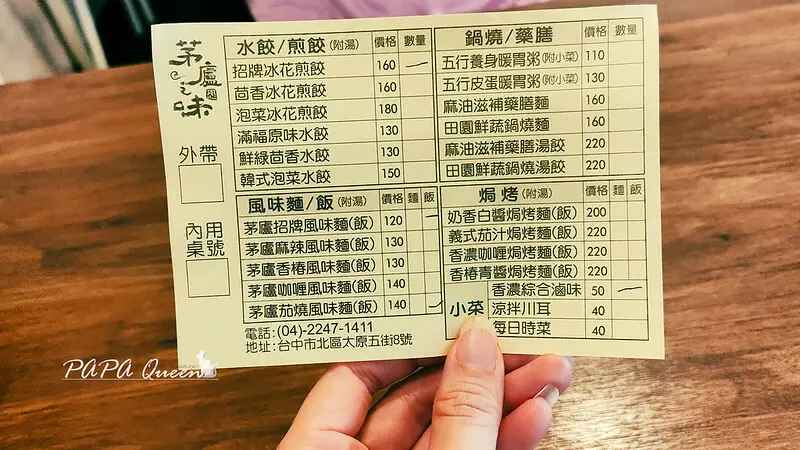 茅廬之味
外帶
內用
桌號
水餃/煎餃(附湯) 價格 數量
招牌冰花煎餃 160
茴香冰花煎餃 160
泡菜冰花煎餃 180
滿福原味水餃 130
鮮綠茴香水餃 130
韓式泡菜水餃 150
風味麵/飯(附湯) 價格 麵 飯
茅廬招牌風味麵(飯) 120
茅廬麻辣風味麵(飯) 130
茅廬香椿風味麵(飯) 130
茅廬咖喱風味麵(飯) 140
茅廬茄燒風味麵(飯) 140
電話:(04)-2247-1411
地址:台中市北區太原五街8號
鍋燒/藥膳 價格 數量
五行養身暖胃粥(附小菜) 110
五行皮蛋暖胃粥(附小菜) 130
麻油滋補藥膳麵 160
田園鮮蔬鍋燒麵 160
麻油滋補藥膳湯餃 220
田園鮮蔬鍋燒湯餃 220
焗烤(附湯) 價格 麵 飯
奶香白醬焗烤麵(飯) 200
義式茄汁焗烤麵(飯) 220
香濃咖喱焗烤麵(飯) 220
香椿青醬焗烤麵(飯) 220
小菜
香濃綜合滷味 50
涼拌川耳 40
每日時菜 40
PAPA Queen